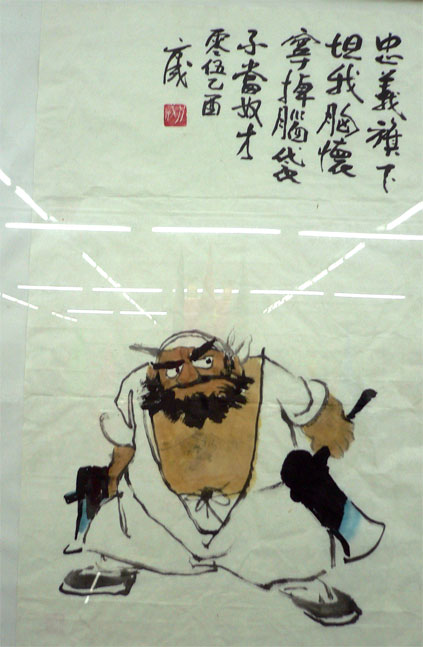 忠義旗下
坦我胸懷
寧掉腦袋
不當奴才
零伍乙酉